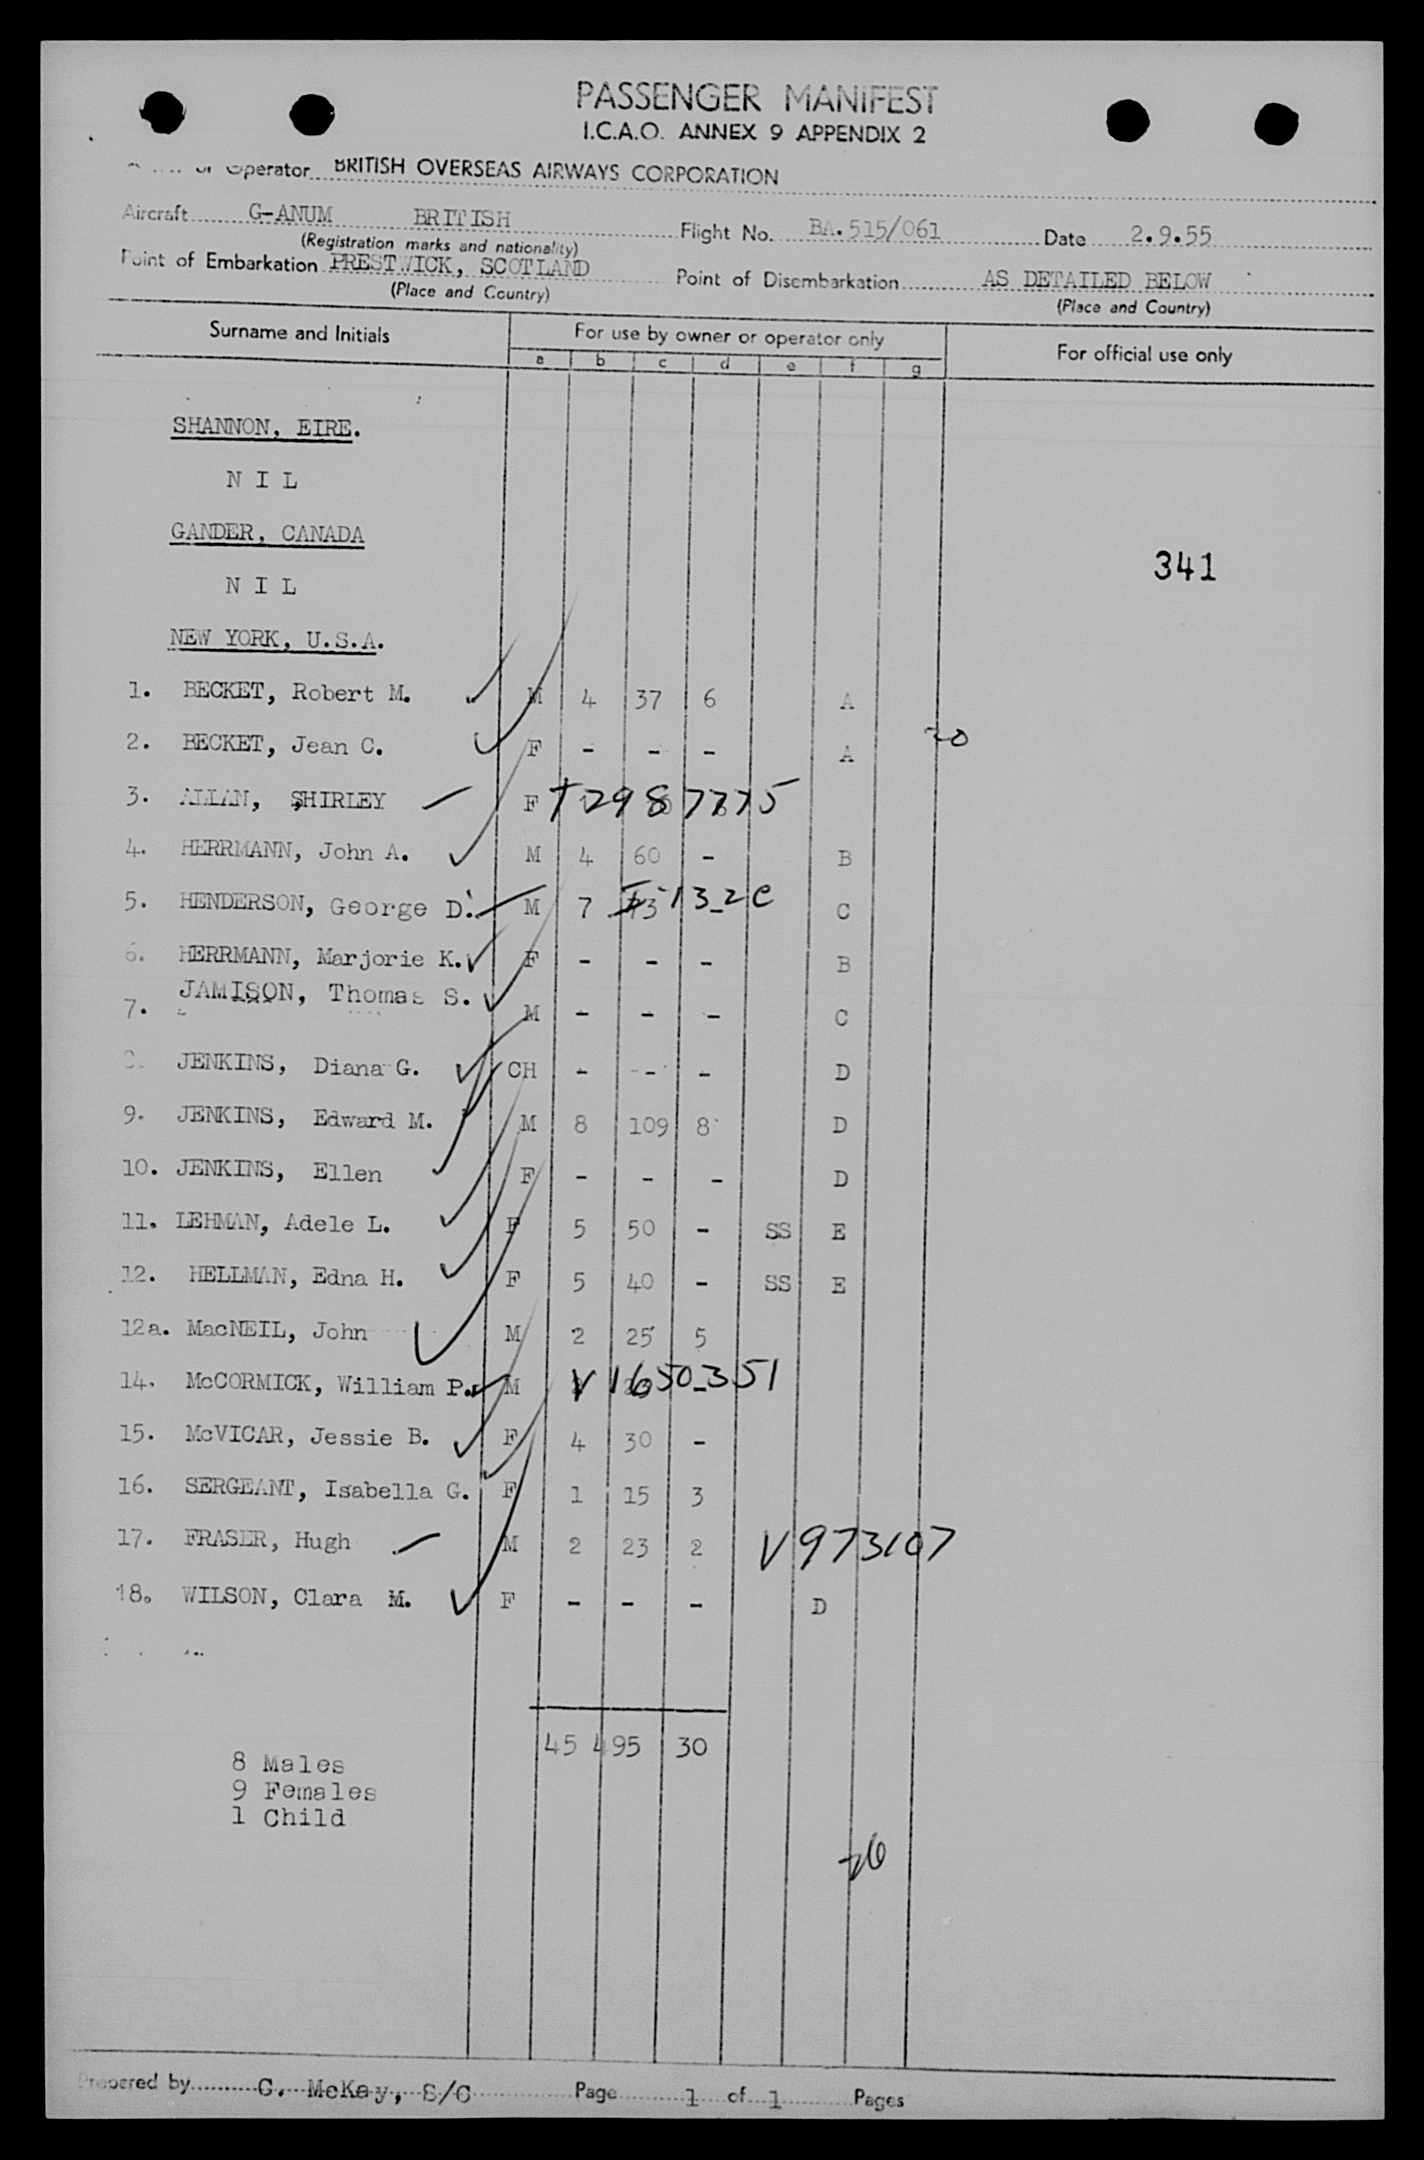 PASSENGER MANIFEST
I.C.A.O. ANNEX 9 APPENDIX 2
or Operator BRITISH OVERSEAS AIRWAYS CORPORATION
Aircraft G-ANUM BRITISH Flight No. BA.515/061 Date 2.9.55
(Registration marks and nationality)
Point of Embarkation PRESTWICK, SCOTLAND Point of Disembarkation AS DETAILED BELOW
(Place and Country) (Place and Country)
Surname and Initials For use by owner or operator only For official use only
a b c d e f g
SHANNON, EIRE.
N I L
GANDER, CANADA
N I L
341
NEW YORK, U.S.A.
1. BECKET, Robert M. M 4 37 6 A
2. BECKET, Jean C. F - - - A
20
3. ALLAN, SHIRLEY F T2987775
4. HERRMANN, John A. M 4 60 - B
5. HENDERSON, George D. M 7 13-2C C
6. HERRMANN, Marjorie K. F - - - B
7. JAMISON, Thomas S. M - - - C
8. JENKINS, Diana G. CH - - - D
9. JENKINS, Edward M. M 8 109 8 D
10. JENKINS, Ellen F - - - D
11. LEHMAN, Adele L. F 5 50 - SS E
12. HELLMAN, Edna H. F 5 40 - SS E
12a. MacNEIL, John M 2 25 5
14. McCORMICK, William P. M V1650351
15. McVICAR, Jessie B. F 4 30 -
16. SERGEANT, Isabella G. F 1 15 3
17. FRASER, Hugh M 2 23 2 V973107
18. WILSON, Clara M. F - - - D
45 495 30
8 Males
9 Females
1 Child
Prepared by C. McKay, S/C Page 1 of 1 Pages